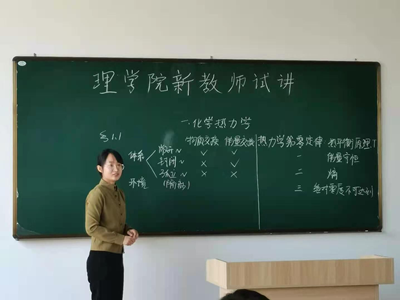 理学院新教师试讲
一.化学热力学
§1.1
物质交换 能量交换
体系
敞开~ √ √
封闭~ × √
孤立~ × ×
(隔离)
环境
热力学第零定律 热平衡原理 T
一 能量守恒
二 熵
三 绝对零度不可达到